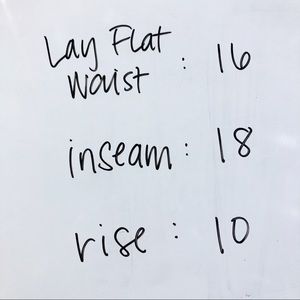 Lay Flat
Waist : 16
inseam : 18
rise : 10